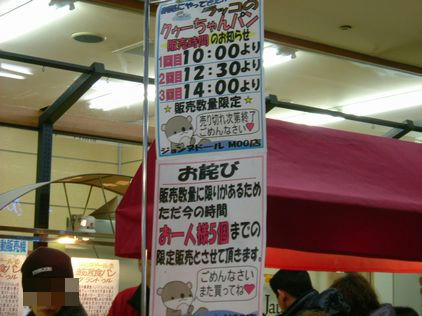 ラッコの
クゥーちゃんパン
販売時間のお知らせ
1回目10:00より
2回目12:30より
3回目14:00より
☆販売数量限定☆
売り切れ次第終了
ごめんなさい♡
ジョアンヌドール MOO店
お詫び
販売数量に限りがあるため
ただ今の時間
お一人様5個までの
限定販売とさせて頂きます。
ごめんなさい
また買ってね♡
動販売機
Jau